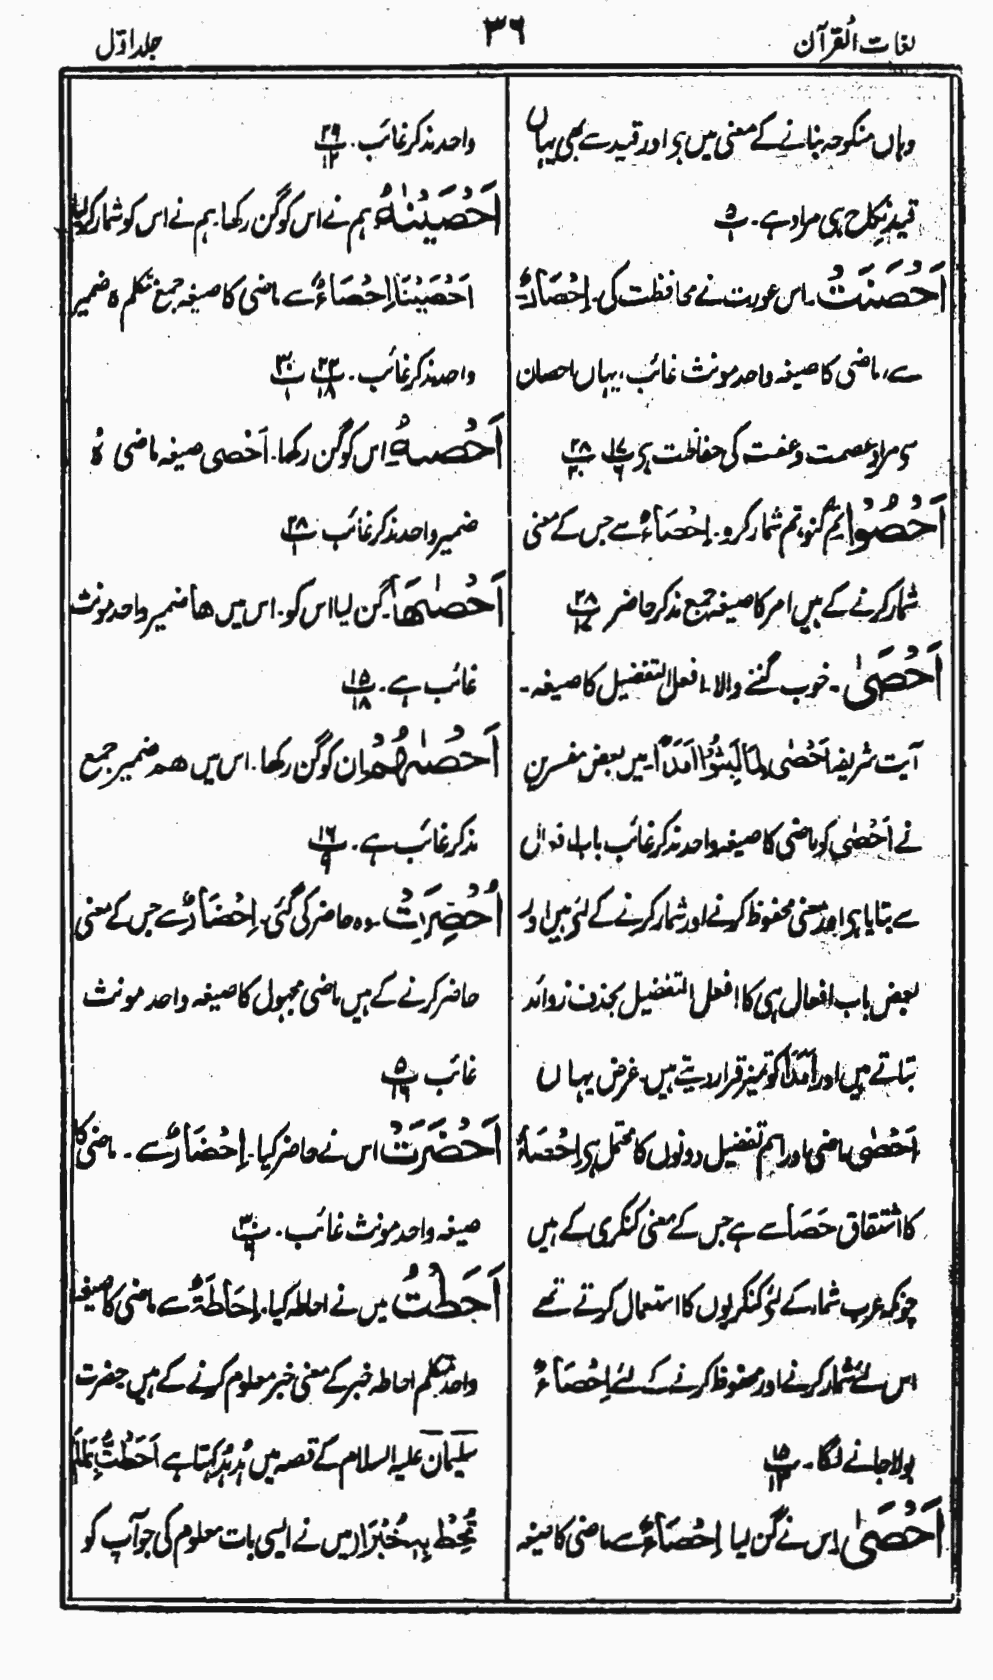 لغات القرآن
۳۶
جلد اوّل
وہاں منکوحہ بنانے کے معنی میں ہی اور قید سے بھی یہاں
قیدِ نکاح ہی مراد ہے۔ ۵/۱
اَحْصَنَتْ۔ اس عورت نے محافظت کی۔ اِحْصَانٌ
سے، ماضی کا صیغہ واحد مونث غائب، یہاں احصان
سے مراد عصمت و عفت کی حفاظت ہی ۱۷/۶ ۲۸/۲۰
اَحْصُوْا تم گنو، تم شمار کرو۔ اِحْصَاءٌ سے جس کے معنی
شمار کرنے کے ہیں امر کا صیغہ جمع مذکر حاضر ۲۸/۱۷
اَحْصٰی۔ خوب گننے والا۔ افعل التفضیل کا صیغہ۔
آیت شریفہ اَحْصٰی لِمَا لَبِثُوْا اَمَدًا۔ میں بعض مفسرین
نے اَحْصٰی کو ماضی کا صیغہ واحد مذکر غائب باب افعال
سے بتایا ہی اور معنی محفوظ کرنے اور شمار کرنے کے لئے ہیں اور
بعض باب افعال ہی کا افعل التفضیل بحذف زوائد
بتاتے ہیں اور اَمَدًا کو تمیز قرار دیتے ہیں۔ غرض یہاں
اَحْصٰی ماضی اور اسم تفضیل دونوں کا محتمل ہی اِحْصَاءٌ
کا اشتقاق حَصَا سے ہے جس کے معنی کنکری کے ہیں
چونکہ عرب شمار کے لئے کنکریوں کا استعمال کرتے تھے
اس لئے شمار کرنے اور محفوظ کرنے کے لئے اِحْصَاءٌ
بولا جانے لگا۔ ۱۵/۱۳
اَحْصٰی اس نے گن لیا اِحْصَاءٌ سے ماضی کا صیغہ
واحد مذکر غائب۔ ۲۹/۱۲
اَحْصَیْنٰہُ ہم نے اس کو گن رکھا۔ ہم نے اس کو شمار کر لیا
اَحْصَیْنَا اِحْصَاءٌ سے ماضی کا صیغہ جمع متکلم ہ ضمیر
واحد مذکر غائب۔ ۲۲/۱۸ ۳۰/۱
اَحْصٰہُ اس کو گن رکھا۔ اَحْصٰی صیغہ ماضی ہُ
ضمیر واحد مذکر غائب ۲۸/۱
اَحْصٰھَا۔ گن لیا اس کو۔ اس میں ھا ضمیر واحد مونث
غائب ہے۔ ۱۵/۱۸
اَحْصٰھُمْ ان کو گن رکھا۔ اس میں ھم ضمیر جمع
مذکر غائب ہے۔ ۱۶/۹
اُحْضِرَتْ۔ وہ حاضر کی گئی۔ اِحْضَارٌ سے جس کے معنی
حاضر کرنے کے ہیں ماضی مجہول کا صیغہ واحد مونث
غائب ۵/۱۶
اَحْضَرَتْ اس نے حاضر کیا۔ اِحْضَارٌ سے۔ ماضی کا
صیغہ واحد مونث غائب۔ ۳۰/۶
اَحَطْتُّ میں نے احاطہ کیا۔ اِحَاطَۃٌ سے ماضی کا صیغہ
واحد متکلم احاطہ خبر کے معنی خبر معلوم کرنے کے ہیں حضرت
سلیمان علیہ السلام کے قصہ میں ہُدہُد کہتا ہے اَحَطْتُّ بِمَا لَمْ
تُحِطْ بِہٖ خُبْرًا میں نے ایسی بات معلوم کی جو آپ کو